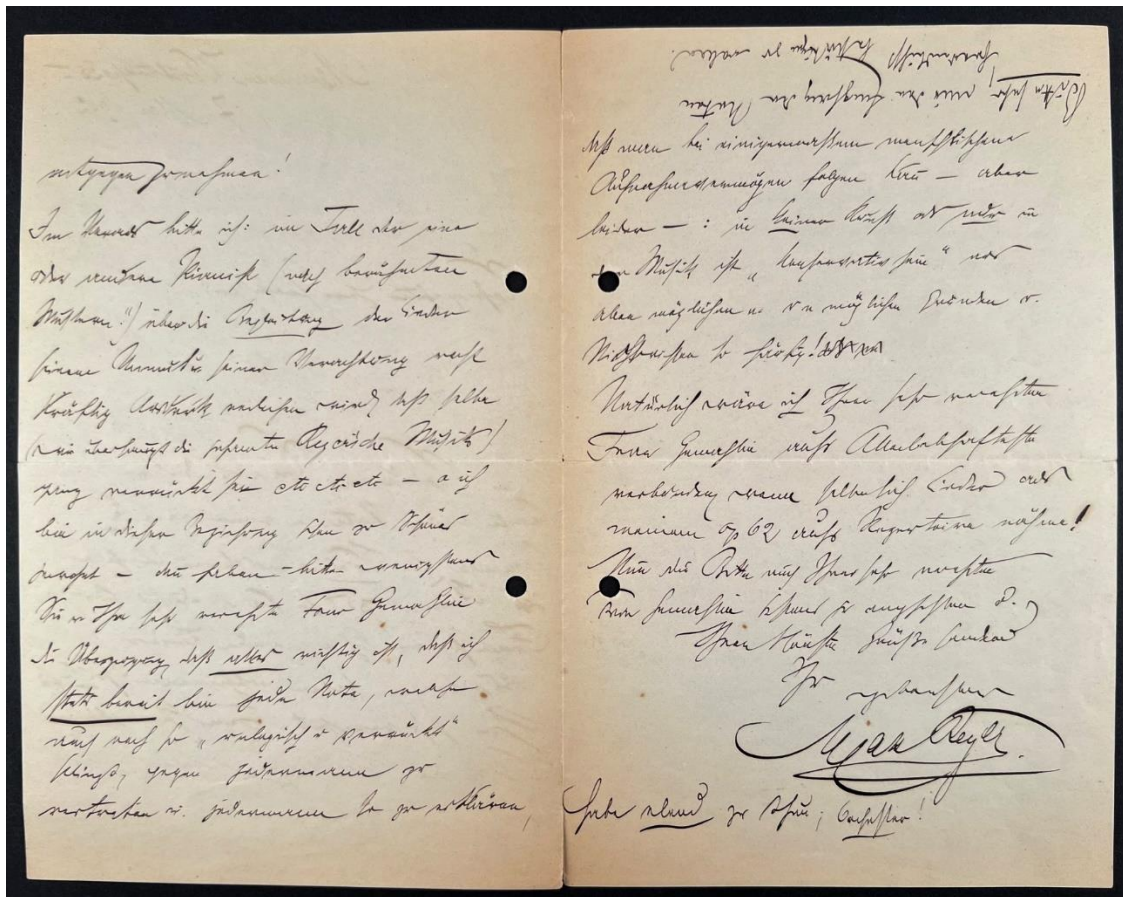 entgegen zu nehmen!
Im Voraus bitte ich: im Falle der eine
oder andere Pianist (nach berühmten
Mustern!) über die Begleitung der Lieder
seinem Unmut u. seiner Verachtung recht
kräftig Ausdruck verleihen wird, daß selbe
(wie überhaupt die gesamte Regersche Musik)
ganz verrückt sei etc etc etc – o ich
bin in dieser Beziehung schon zu Schönes
gewohnt – dann haben – bitte wenigstens
Sie u Ihre sehr verehrte Frau Gemahlin
die Überzeugung, daß alles richtig ist, daß ich
stets bereit bin jede Note, welche
auch noch so „unlogisch u verrückt"
klingt, gegen jedermann zu
vertreten u. jedermann so zu erklären,
daß man bei einigermaßen menschlichem
Aufnahmevermögen folgen kann – aber
leider – : in keiner Kunst als nur in
der Musik ist „konservativ sein" aus
allen möglichen u. unmöglichen Gründen u.
so häufig!
Natürlich wäre ich Ihrer sehr verehrten
Frau Gemahlin aufs Allerlebhafteste
verbunden, wenn selbe sich Lieder aus
meinem op 62 aufs Repertoire nähme!
Nun die Bitte mich Ihrer sehr verehrten
Frau Gemahlin bestens zu empfehlen u.
Ihnen schönste Grüße sendend
Ihr
ergebenster
Max Reger.
habe elend zu thun; Orchester!
Bitte sehr, mir den Empfang der Noten
freundlichst bestätigen zu wollen.